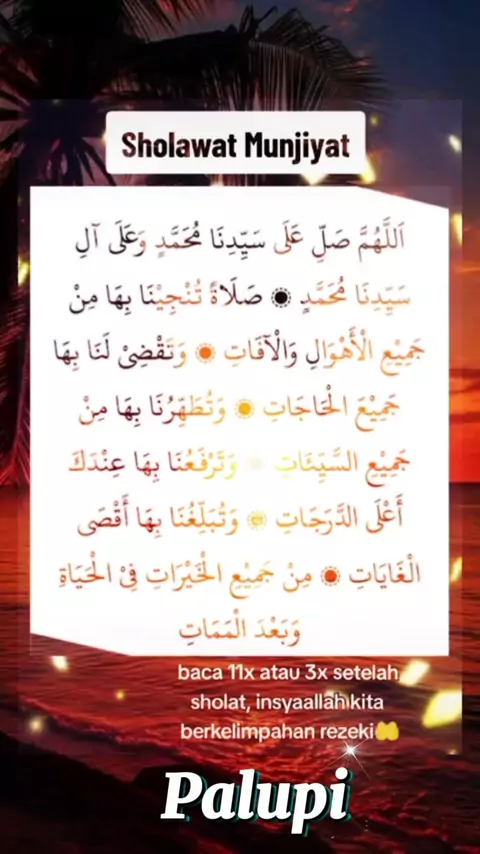 Sholawat Munjiyat
اَللّٰهُمَّ صَلِّ عَلَى سَيِّدِنَا مُحَمَّدٍ وَعَلَى آلِ
سَيِّدِنَا مُحَمَّدٍ ۞ صَلَاةً تُنْجِيْنَا بِهَا مِنْ
جَمِيْعِ الْأَهْوَالِ وَالْآفَاتِ ۞ وَتَقْضِىْ لَنَا بِهَا
جَمِيْعَ الْحَاجَاتِ ۞ وَتُطَهِّرُنَا بِهَا مِنْ
جَمِيْعِ السَّيِّئَاتِ ۞ وَتَرْفَعُنَا بِهَا عِنْدَكَ
أَعْلَى الدَّرَجَاتِ ۞ وَتُبَلِّغُنَا بِهَا أَقْصَى
الْغَايَاتِ ۞ مِنْ جَمِيْعِ الْخَيْرَاتِ فِىْ الْحَيَاةِ
وَبَعْدَ الْمَمَاتِ
baca 11x atau 3x setelah
sholat, insyaallah kita
berkelimpahan rezeki🤲
Palupi